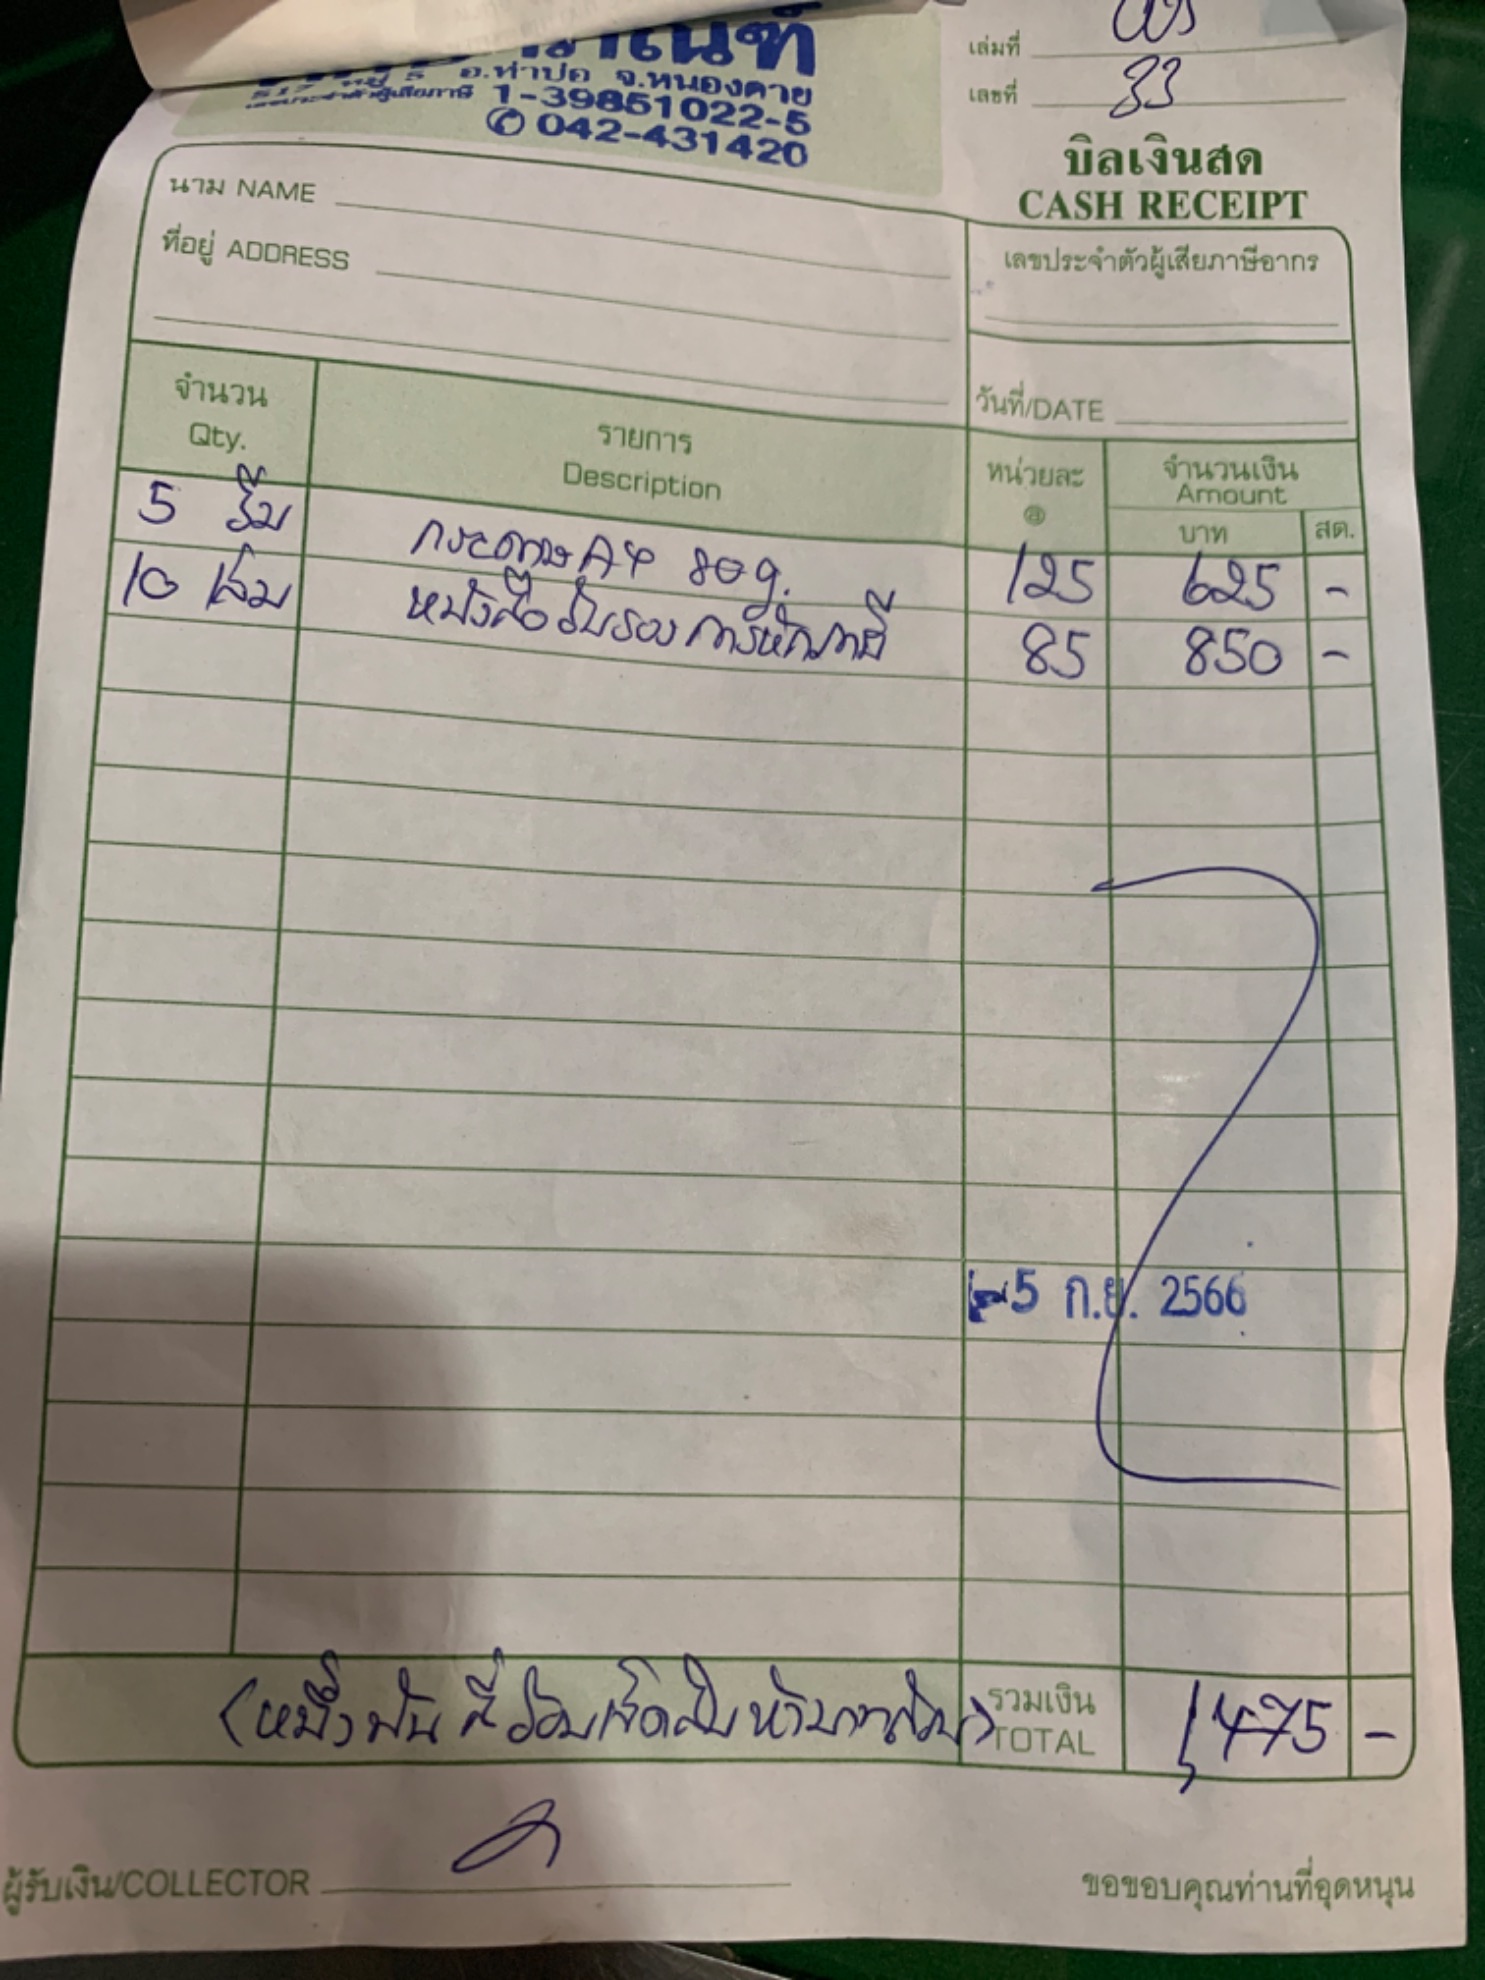 517 หมู่ 5 อ.ท่าบ่อ จ.หนองคาย
เลขประจำตัวผู้เสียภาษี 1-39851022-5
✆ 042-431420
เล่มที่ 003
เลขที่ 33
บิลเงินสด
CASH RECEIPT
นาม NAME
ที่อยู่ ADDRESS
เลขประจำตัวผู้เสียภาษีอากร
วันที่/DATE
จำนวน รายการ หน่วยละ จำนวนเงิน
Qty. Description @ Amount
บาท สต.
5 รีม กระดาษ A4 80 g. 125 625 -
10 เล่ม หนังสือรับรองการหักภาษี 85 850 -
5 ก.ย. 2566
(หนึ่งพันสี่ร้อยเจ็ดสิบห้าบาทถ้วน) รวมเงิน 1,475 -
TOTAL
ผู้รับเงิน/COLLECTOR
ขอขอบคุณท่านที่อุดหนุน